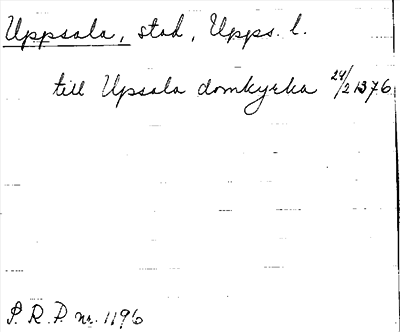 Uppsala, stad, Upps. l.
till Upsala domkyrka 24/2 1376
S. R. P. nr. 1196